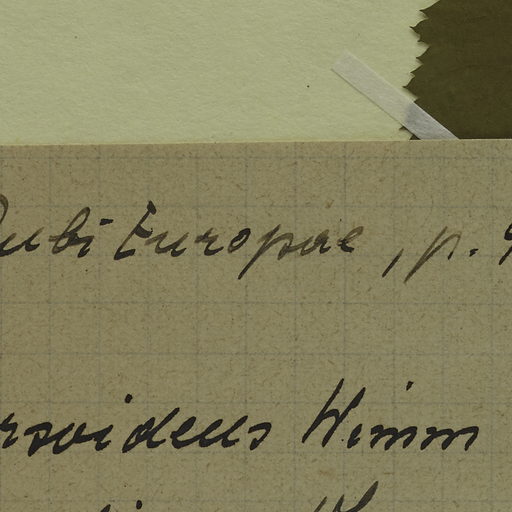 Rubi Europae, p. 9
rsoideus Wimm